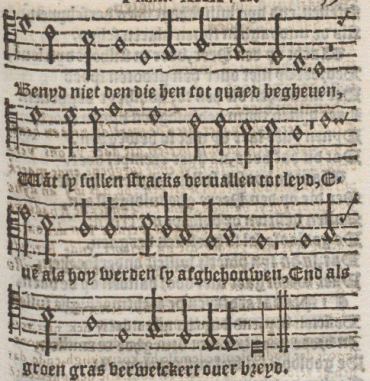 Benyd niet den die hen tot quaed begheuen,
Wãt sy sullen stracks veruallen tot leyd, E-
uẽ als hoy werden sy afghehouwen, End als
groen gras verwelckert ouer breyd.